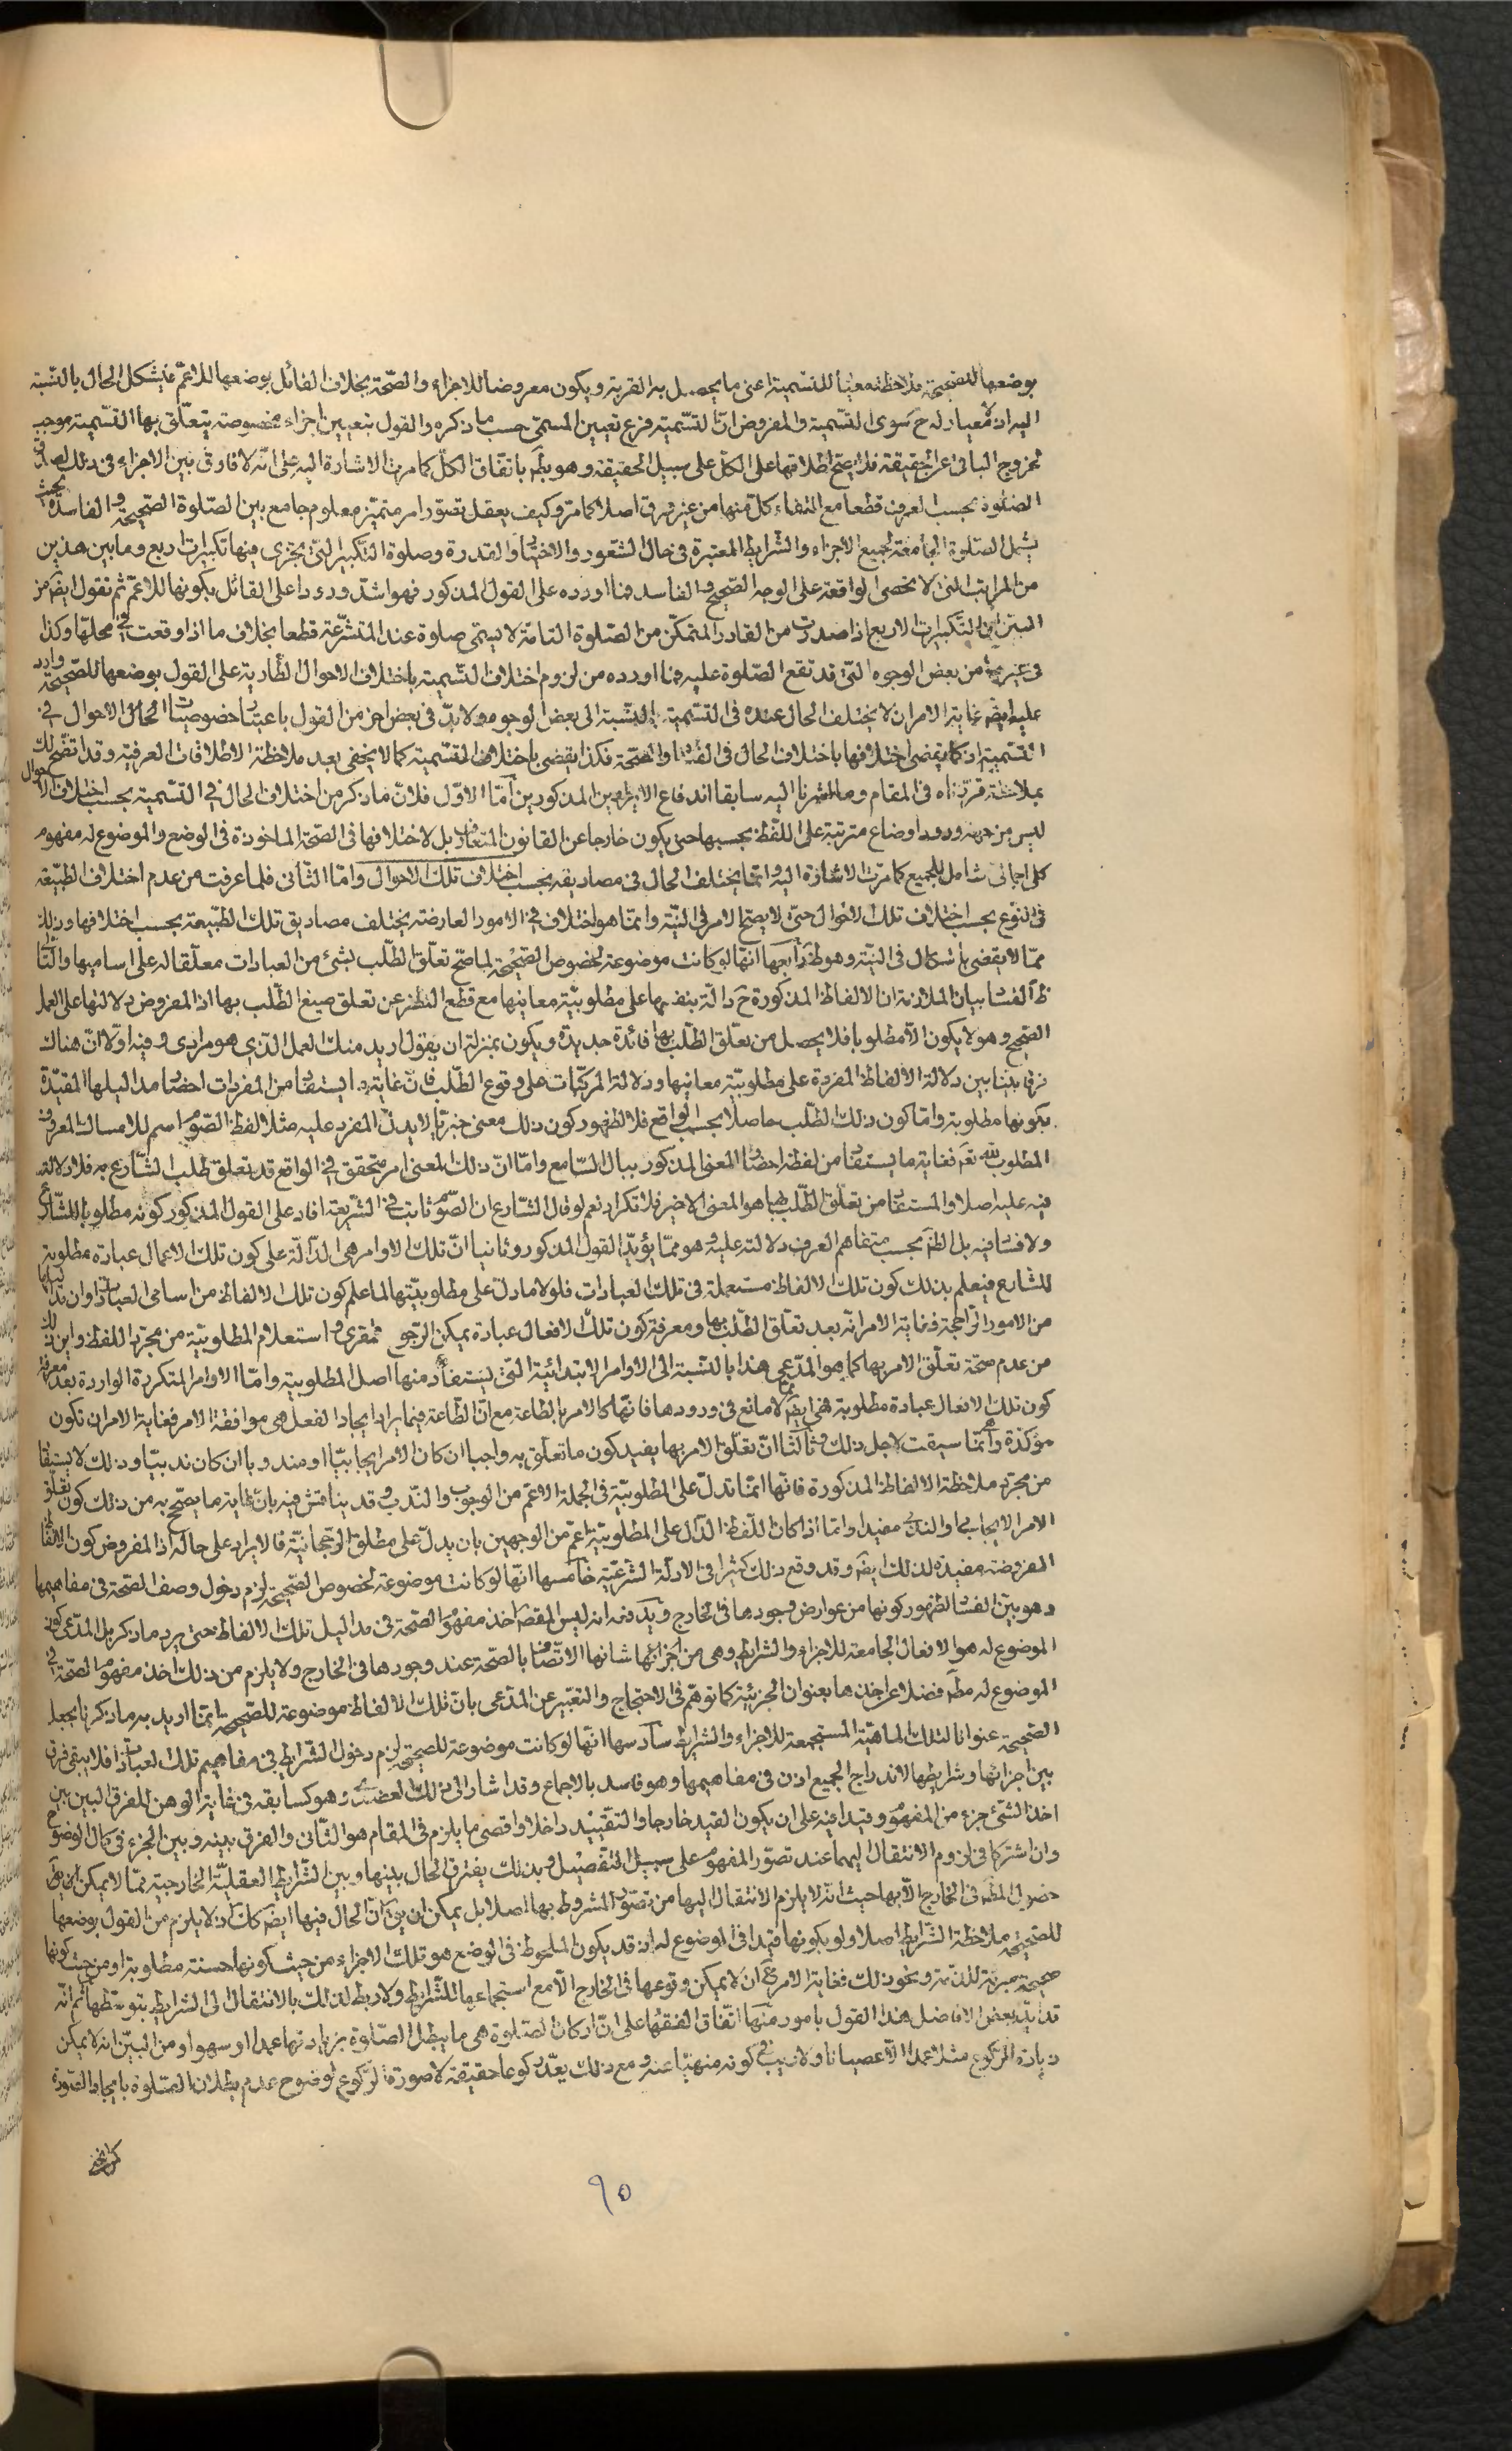 بوضعها للصحيحة ملاحظته معينا للتسمية اعنى ما يحصل به القربة ويكون معروضا للاجزاء والصحة بخلاف القائل بوضعها للاعم فيشكل الحال بالنسبة
اليه اذ لا معيار له ح سوى التسمية والمفروض ان التسمية فرع تعيين المسمى حسب ما ذكره والقول بتعيين اجزاء مخصوصة يتعلق بها التسمية موجب
لخروج الباقى عن الحقيقة فلا يصح اطلاقها على الكل على سبيل الحقيقة وهو بط باتفاق الكل كما مرت الاشارة اليه على انه لا فارق بين الاجزاء فى ذلك لصدق
الصلوة بحسب العرف قطعا مع انتفاء كل منها من غير فرق اصلا كما مر وكيف يعقل تصور امر متميز معلوم جامع بين الصلوة الصحيحة والفاسدة بحيث
يشمل الصلوة الجامعة لجميع الاجزاء والشرايط المعتبرة فى حال الشعور والاختيار والقدرة وصلوة التكبير التى يجزى فيها تكبيرات اربع وما بين هذين
من المراتب التى لا تحصى الواقعة على الوجه الصحيح والفاسد فما اورده على القول المذكور فهو اشد ورودا على القائل بكونها للاعم ثم نقول ايضا من
البين ان التكبيرات الاربع اذا صدرت من القادر المتمكن من الصلوة التامة لا يسمى صلوة عند المتشرعة قطعا بخلاف ما اذا وقعت فى محلها وكذا
فى غيره من بعض الوجوه التى قد تقع الصلوة عليه فما اورده من لزوم اختلاف التسمية باختلاف الاحوال الطارية على القول بوضعها للصحيحة وارد
عليه ايضا غاية الامر ان لا يختلف الحال عنده فى التسمية بالنسبة الى بعض الوجوه ولا بد فى بعض اخر من القول باعتبار خصوصيات الحال والاحوال فى
التسمية اذ كما يقضى اختلافها باختلاف الحال فى الفساد والصحة فكذا يقضى باختلاف التسمية كما لا يخفى بعد ملاحظة الاطلاقات العرفية وقد اتضح لك
بملاحظة ما قررناه فى المقام وما اشرنا اليه سابقا اندفاع الايرادين المذكورين اما الاول فلان ما ذكر من اختلاف الحال فى التسمية بحسب اختلاف الاحوال
ليس من جهة ورود اوضاع مترتبة على اللفظ بحسبها حتى يكون خارجا عن القانون المتعارف بل لاختلافها فى الصحة الماخوذة فى الوضع والموضوع له مفهوم
كلى اجمالى شامل للجميع كما مرت الاشارة اليه وانما يختلف الحال فى مصاديقه بحسب اختلاف تلك الاحوال واما الثانى فلما عرفت من عدم اختلاف الطبيعة
فى النوع بحسب اختلاف تلك الاحوال حتى لا يصح الامر فى النية وانما هو اختلاف فى الامور العارضة يختلف مصاديق تلك الطبيعة بحسب اختلافها وذلك
مما لا يقضى باشكال فى النية وهو ظ رابعها انها لو كانت موضوعة لخصوص الصحيحة لما صح تعلق الطلب بشئ من العبادات معلقا له على اساميها والتالى
ظ الفساد بيان الملازمة ان الالفاظ المذكورة ح دالة بنفسها على مطلوبية معانيها مع قطع النظر عن تعلق صيغ الطلب بها اذ المفروض دلالتها على العمل
الصحيح وهو لا يكون الا مطلوبا فلا يحصل من تعلق الطلب بها فائدة جديدة ويكون بمنزلة ان يقول اريد منك العمل الذى هو مرادى وفيه اولا ان هناك
فرقا بينا بين دلالة الالفاظ المفردة على مطلوبية معانيها ودلالة المركبات على وقوع الطلب فان غاية ما يستفاد من المفردات احضار مداليلها المقيدة
بكونها مطلوبة واما كون ذلك الطلب حاصلا بحسب الواقع فلا لظهور كون ذلك معنى خبريا لا يدل المفرد عليه مثلا لفظ الصوم اسم للامساك المعروف
المطلوب لله تعم فغاية ما يستفاد من لفظه احضار المعنى المذكور ببال السامع واما ان ذلك المعنى امر متحقق فى الواقع قد تعلق طلب الشارع به فلا دلالة
فيه عليه اصلا والمستفاد من تعلق الطلب بها هو المعنى الاخير فلا تكرار نعم لو قال الشارع ان الصوم ثابت فى الشريعة افاد على القول المذكور كونه مطلوبا للشارع
ولا فساد فيه بل الظ بحسب متفاهم العرف دلالته عليه وهو مما يؤيد القول المذكور وثانيا ان تلك الاوامر هى الدالة على كون تلك الاعمال عبادة مطلوبة
للشارع فيعلم بذلك كون تلك الالفاظ مستعملة فى تلك العبادات فلولا ما دل على مطلوبيتها لما علم كون تلك الالفاظ من اسامى العبادات وان
من الامور الراجحة فغاية الامر انه بعد تعلق الطلب بها ومعرفة كون تلك الافعال عبادة يمكن الرجوع واستعلام المطلوبية من مجرد اللفظ واين ذلك
من عدم صحة تعلق الامر بها كما هو المدعى هذا بالنسبة الى الاوامر الابتدائية التى يستفاد منها اصل المطلوبية واما الاوامر المتكررة الواردة بعد معرفة
كون تلك الافعال عبادة مطلوبة فهى ايضا مما لا مانع فى ورودها فانها كالامر بالطاعة مع ان الطاعة فيما يراد ايجاد الفعل هى موافقة الامر فغاية الامر ان تكون
مؤكدة وانما سيقت لاجل ذلك وثالثا ان تعلق الامر بها يفيد كون ما تعلق به واجبا ان كان الامر ايجابيا او مندوبا ان كان ندبيا وذلك لا يستفاد
من مجرد ملاحظة الالفاظ المذكورة فانها انما تدل على المطلوبية فى الجملة الاعم من الوجوب والندب وقد يناقش فيه بان غاية ما يصح به من ذلك كون تعلق
الامر الايجابى او الندبى مفيدا واما اذا كان اللفظ الدال على المطلوبية اعم من الوجهين بان يدل على مطلق الرجحانية فالايراد على حاله اذ المفروض كون الالفاظ
المفروضة مفيدة لذلك ايضا وقد وقع ذلك كثيرا فى الادلة الشرعية خامسها انها لو كانت موضوعة لخصوص الصحيحة لزم دخول وصف الصحة فى مفاهيمها
وهو بين الفساد لظهور كونها من عوارض وجودها فى الخارج ويدفعه انه ليس المقصود اخذ مفهوم الصحة فى مداليل تلك الالفاظ حتى يرد ما ذكر بل المدعى كون
الموضوع له هو الافعال الجامعة للاجزاء والشرايط وهى من شانها الاتصاف بالصحة عند وجودها فى الخارج ولا يلزم من ذلك اخذ مفهوم الصحة فى
الموضوع له مط فضلا عن اخذها بعنوان الجزئية كما توهم فى الاحتجاج والتعبير عن المدعى بان تلك الالفاظ موضوعة للصحيحة انما اريد به ما ذكرنا بجعل
الصحيحة عنوانا لتلك الماهية المستجمعة للاجزاء والشرايط سادسها انها لو كانت موضوعة للصحيحة لزم دخول الشرايط فى مفاهيم تلك العبادات فلا يبقى فرق
بين اجزائها وشرايطها لاندراج الجميع اذن فى مفاهيمها وهو فاسد بالاجماع وقد اشار الى ذلك العضدى وهو كسابقه فى غاية الوهن للفرق البين بين
اخذ الشئ جزء من المفهوم وقيدا فيه على ان يكون القيد خارجا والتقييد داخلا واقصى ما يلزم فى المقام هو الثانى والفرق بينه وبين الجزء فى كمال الوضوح
وان اشتركا فى لزوم الانتقال اليهما عند تصور المفهوم على سبيل التفصيل وبذلك يفترق الحال بينها وبين الشرايط العقلية الخارجية مما لا يمكن
حصول المط فى الخارج الا بها حيث انه لا يلزم الانتقال اليها من تصور المشروط بها اصلا بل يمكن ان يق ان الحال فيها ايضا كك اذ لا يلزم من القول بوضعها
للصحيحة ملاحظة الشرايط اصلا ولو بكونها قيدا فى الموضوع له اذ قد يكون الملحوظ فى الوضع هو تلك الاجزاء من حيث كونها حسنة مطلوبة او من حيث كونها
صحيحة مبرئة للذمة ونحو ذلك فغاية الامر ح ان لا يمكن وقوعها فى الخارج الا مع استجماعها للشرايط ولا ربط لذلك بالانتقال الى الشرايط بتوسطها ثم انه
قد ايد بعض الافاضل هذا القول بامور منها اتفاق الفقهاء على ان اركان الصلوة هى ما يبطل الصلوة بزيادتها عمدا او سهوا ومن البين انه لا يمكن
زيادة الركوع مثلا عمدا الا عصيانا ولا ريب فى كونه منهيا عنه ومع ذلك يعد ركوعا حقيقة لا صورة الركوع لوضوح عدم بطلان الصلوة بايجاد الصورة
٩٥